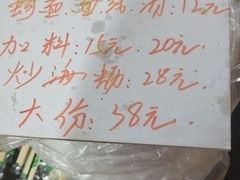 12元
加料:15元.20元.
炒海粉:28元.
大份:38元.